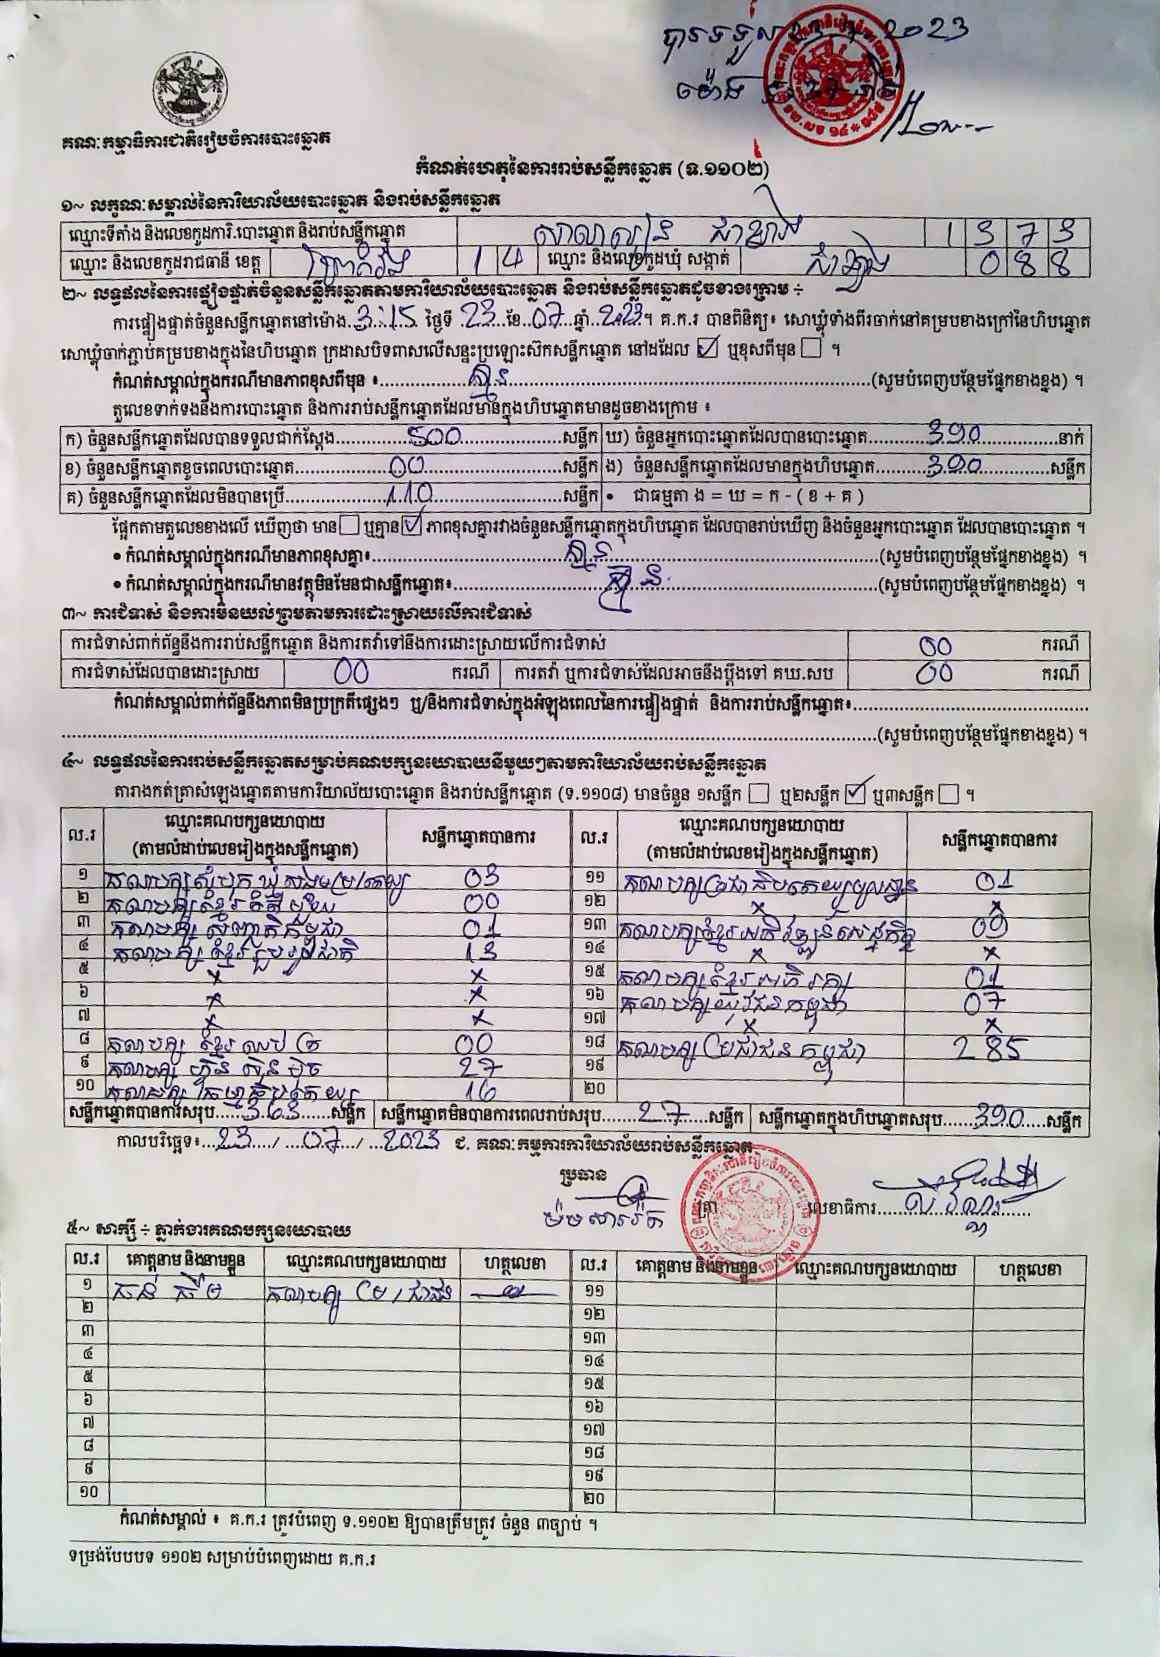 បានទទួល 23 7 2023
ម៉ោង
គណៈកម្មាធិការជាតិរៀបចំការបោះឆ្នោត
កំណត់ហេតុនៃការរាប់សន្លឹកឆ្នោត (ទ.១១០២)
១~ លក្ខណៈសម្គាល់នៃការិយាល័យបោះឆ្នោត និងរាប់សន្លឹកឆ្នោត
ឈ្មោះទីតាំង និងលេខកូដការិ.បោះឆ្នោត និងរាប់សន្លឹកឆ្នោត សាលារៀន 1 3 7 3
ឈ្មោះ និងលេខកូដរាជធានី ខេត្ត ព្រៃវែង 1 4 ឈ្មោះ និងលេខកូដឃុំ សង្កាត់ 0 8 8
២~ លទ្ធផលនៃការផ្ទៀងផ្ទាត់ចំនួនសន្លឹកឆ្នោតតាមការិយាល័យបោះឆ្នោត និងរាប់សន្លឹកឆ្នោតដូចខាងក្រោម ÷
ការផ្ទៀងផ្ទាត់ចំនួនសន្លឹកឆ្នោតនៅម៉ោង 3:15 ថ្ងៃទី 23 ខែ 07 ឆ្នាំ 2023 ។ គ.ក.រ បានពិនិត្យ៖ សោឃ្លុំទាំងពីរចាក់នៅគម្របខាងក្រៅនៃហិបឆ្នោត
សោឃ្លុំចាក់ភ្ជាប់គម្របខាងក្នុងនៃហិបឆ្នោត ក្រដាសបិទពាសលើសន្ទះប្រឡោះស៊កសន្លឹកឆ្នោត នៅដដែល ☑ ឬខុសពីមុន ☐ ។
កំណត់សម្គាល់ក្នុងករណីមានភាពខុសពីមុន ៖ គ្មាន (សូមបំពេញបន្ថែមផ្នែកខាងខ្នង) ។
តួលេខទាក់ទងនឹងការបោះឆ្នោត និងការរាប់សន្លឹកឆ្នោតដែលមានក្នុងហិបឆ្នោតមានដូចខាងក្រោម ៖
ក) ចំនួនសន្លឹកឆ្នោតដែលបានទទួលជាក់ស្តែង 500 សន្លឹក ឃ) ចំនួនអ្នកបោះឆ្នោតដែលបានបោះឆ្នោត 390 នាក់
ខ) ចំនួនសន្លឹកឆ្នោតខូចពេលបោះឆ្នោត 00 សន្លឹក ង) ចំនួនសន្លឹកឆ្នោតដែលមានក្នុងហិបឆ្នោត 390 សន្លឹក
គ) ចំនួនសន្លឹកឆ្នោតដែលមិនបានប្រើ 110 សន្លឹក • ជាធម្មតា ង = ឃ = ក - ( ខ + គ )
ផ្អែកតាមតួលេខខាងលើ ឃើញថា មាន ☐ ឬគ្មាន ☑ ភាពខុសគ្នារវាងចំនួនសន្លឹកឆ្នោតក្នុងហិបឆ្នោត ដែលបានរាប់ឃើញ និងចំនួនអ្នកបោះឆ្នោត ដែលបានបោះឆ្នោត ។
• កំណត់សម្គាល់ក្នុងករណីមានភាពខុសគ្នា៖ គ្មាន (សូមបំពេញបន្ថែមផ្នែកខាងខ្នង) ។
• កំណត់សម្គាល់ក្នុងករណីមានវត្ថុមិនមែនជាសន្លឹកឆ្នោត៖ គ្មាន (សូមបំពេញបន្ថែមផ្នែកខាងខ្នង) ។
៣~ ការជំទាស់ និងការមិនយល់ព្រមតាមការដោះស្រាយលើការជំទាស់
ការជំទាស់ពាក់ព័ន្ធនឹងការរាប់សន្លឹកឆ្នោត និងការតវ៉ាទៅនឹងការដោះស្រាយលើការជំទាស់ 00 ករណី
ការជំទាស់ដែលបានដោះស្រាយ 00 ករណី ការតវ៉ា ឬការជំទាស់ដែលអាចនឹងប្តឹងទៅ គឃ.សប 00 ករណី
កំណត់សម្គាល់ពាក់ព័ន្ធនឹងភាពមិនប្រក្រតីផ្សេងៗ ឬ/និងការជំទាស់ក្នុងអំឡុងពេលនៃការផ្ទៀងផ្ទាត់ និងការរាប់សន្លឹកឆ្នោត៖
(សូមបំពេញបន្ថែមផ្នែកខាងខ្នង) ។
៤~ លទ្ធផលនៃការរាប់សន្លឹកឆ្នោតសម្រាប់គណបក្សនយោបាយនីមួយៗតាមការិយាល័យរាប់សន្លឹកឆ្នោត
តារាងកត់ត្រាសំឡេងឆ្នោតតាមការិយាល័យបោះឆ្នោត និងរាប់សន្លឹកឆ្នោត (ទ.១១០៨) មានចំនួន ១សន្លឹក ☐ ឬ២សន្លឹក ☑ ឬ៣សន្លឹក ☐ ។
ល.រ ឈ្មោះគណបក្សនយោបាយ (តាមលំដាប់លេខរៀងក្នុងសន្លឹកឆ្នោត) សន្លឹកឆ្នោតបានការ ល.រ ឈ្មោះគណបក្សនយោបាយ (តាមលំដាប់លេខរៀងក្នុងសន្លឹកឆ្នោត) សន្លឹកឆ្នោតបានការ
១ គណបក្សសំបុកឃ្មុំសង្គមប្រជាធិបតេយ្យ 03 ១១ គណបក្សប្រជាធិបតេយ្យមូលដ្ឋាន 01
២ គណបក្សខ្មែរ 00 ១២ × ×
៣ គណបក្ស សញ្ជាតិកម្ពុជា 01 ១៣ គណបក្សខ្មែរអភិវឌ្ឍន៍សេដ្ឋកិច្ច 00
៤ គណបក្ស ខ្មែររួបរួមជាតិ 13 ១៤ × ×
៥ × × ១៥ គណបក្សខ្មែរអភិរក្ស 01
៦ × × ១៦ គណបក្សយុវជនកម្ពុជា 07
៧ × × ១៧ × ×
៨ គណបក្ស ខ្មែរឈប់ក្រ 00 ១៨ គណបក្សប្រជាជនកម្ពុជា 285
៩ គណបក្ស ហ៊្វុនស៊ិនប៉ិច 27 ១៩
១០ 16 ២០
សន្លឹកឆ្នោតបានការសរុប 363 សន្លឹក សន្លឹកឆ្នោតមិនបានការពេលរាប់សរុប 27 សន្លឹក សន្លឹកឆ្នោតក្នុងហិបឆ្នោតសរុប 390 សន្លឹក
កាលបរិច្ឆេទ៖ 23 / 07 / 2023 ជ. គណៈកម្មការការិយាល័យរាប់សន្លឹកឆ្នោត
ប្រធាន ត្រា លេខាធិការ
៥~ សាក្សី ÷ ភ្នាក់ងារគណបក្សនយោបាយ
ល.រ គោត្តនាម និងនាមខ្លួន ឈ្មោះគណបក្សនយោបាយ ហត្ថលេខា ល.រ គោត្តនាម និងនាមខ្លួន ឈ្មោះគណបក្សនយោបាយ ហត្ថលេខា
១ គណបក្ស ប្រជាជន ១១
២ ១២
៣ ១៣
៤ ១៤
៥ ១៥
៦ ១៦
៧ ១៧
៨ ១៨
៩ ១៩
១០ ២០
កំណត់សម្គាល់ ៖ គ.ក.រ ត្រូវបំពេញ ទ.១១០២ ឱ្យបានត្រឹមត្រូវ ចំនួន ៣ច្បាប់ ។
ទម្រង់បែបបទ ១១០២ សម្រាប់បំពេញដោយ គ.ក.រ